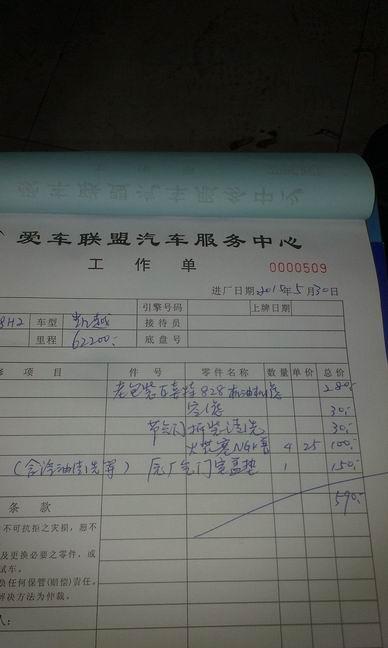 爱车联盟汽车服务中心
工作单
0000509
进厂日期 2015年5月30日
引擎号码 上牌日期
8H2 车型 凯越 接待员
里程 62200 底盘号
项目 件号 零件名称 数量 单价 总价
828机油机滤 280
空滤 30
节气门拆装清洗 30
火花塞NGK 4 25 100
原厂气门室盖垫 1 150
590
条款
不可抗拒之灾损,恕不
及更换必要之零件,或
试车。
负任何保管(赔偿)责任。
解决方法为仲裁。
人: